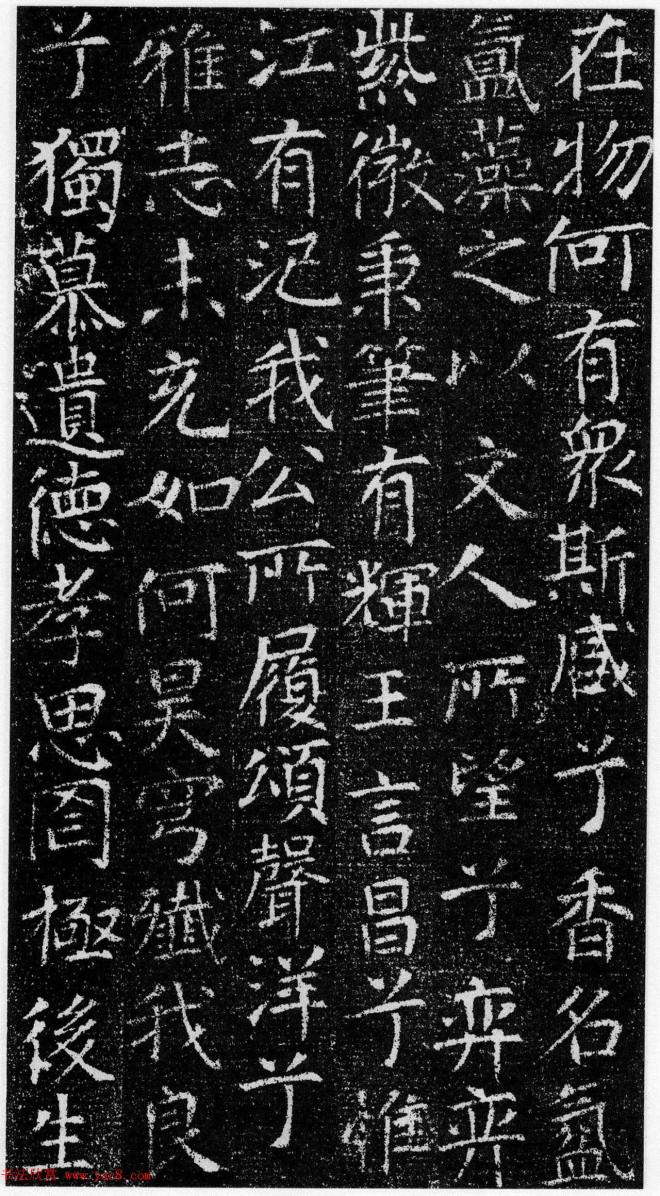 在物何有眾斯感兮香名氳
氳藻之以文人所望兮弈弈
紫微秉筆有輝王言昌兮惟
江有汜我公所履頌聲洋兮
雅志未充如何昊穹殲我良
兮獨慕遺德孝思罔極後生
书法欣赏 www.yac8.com